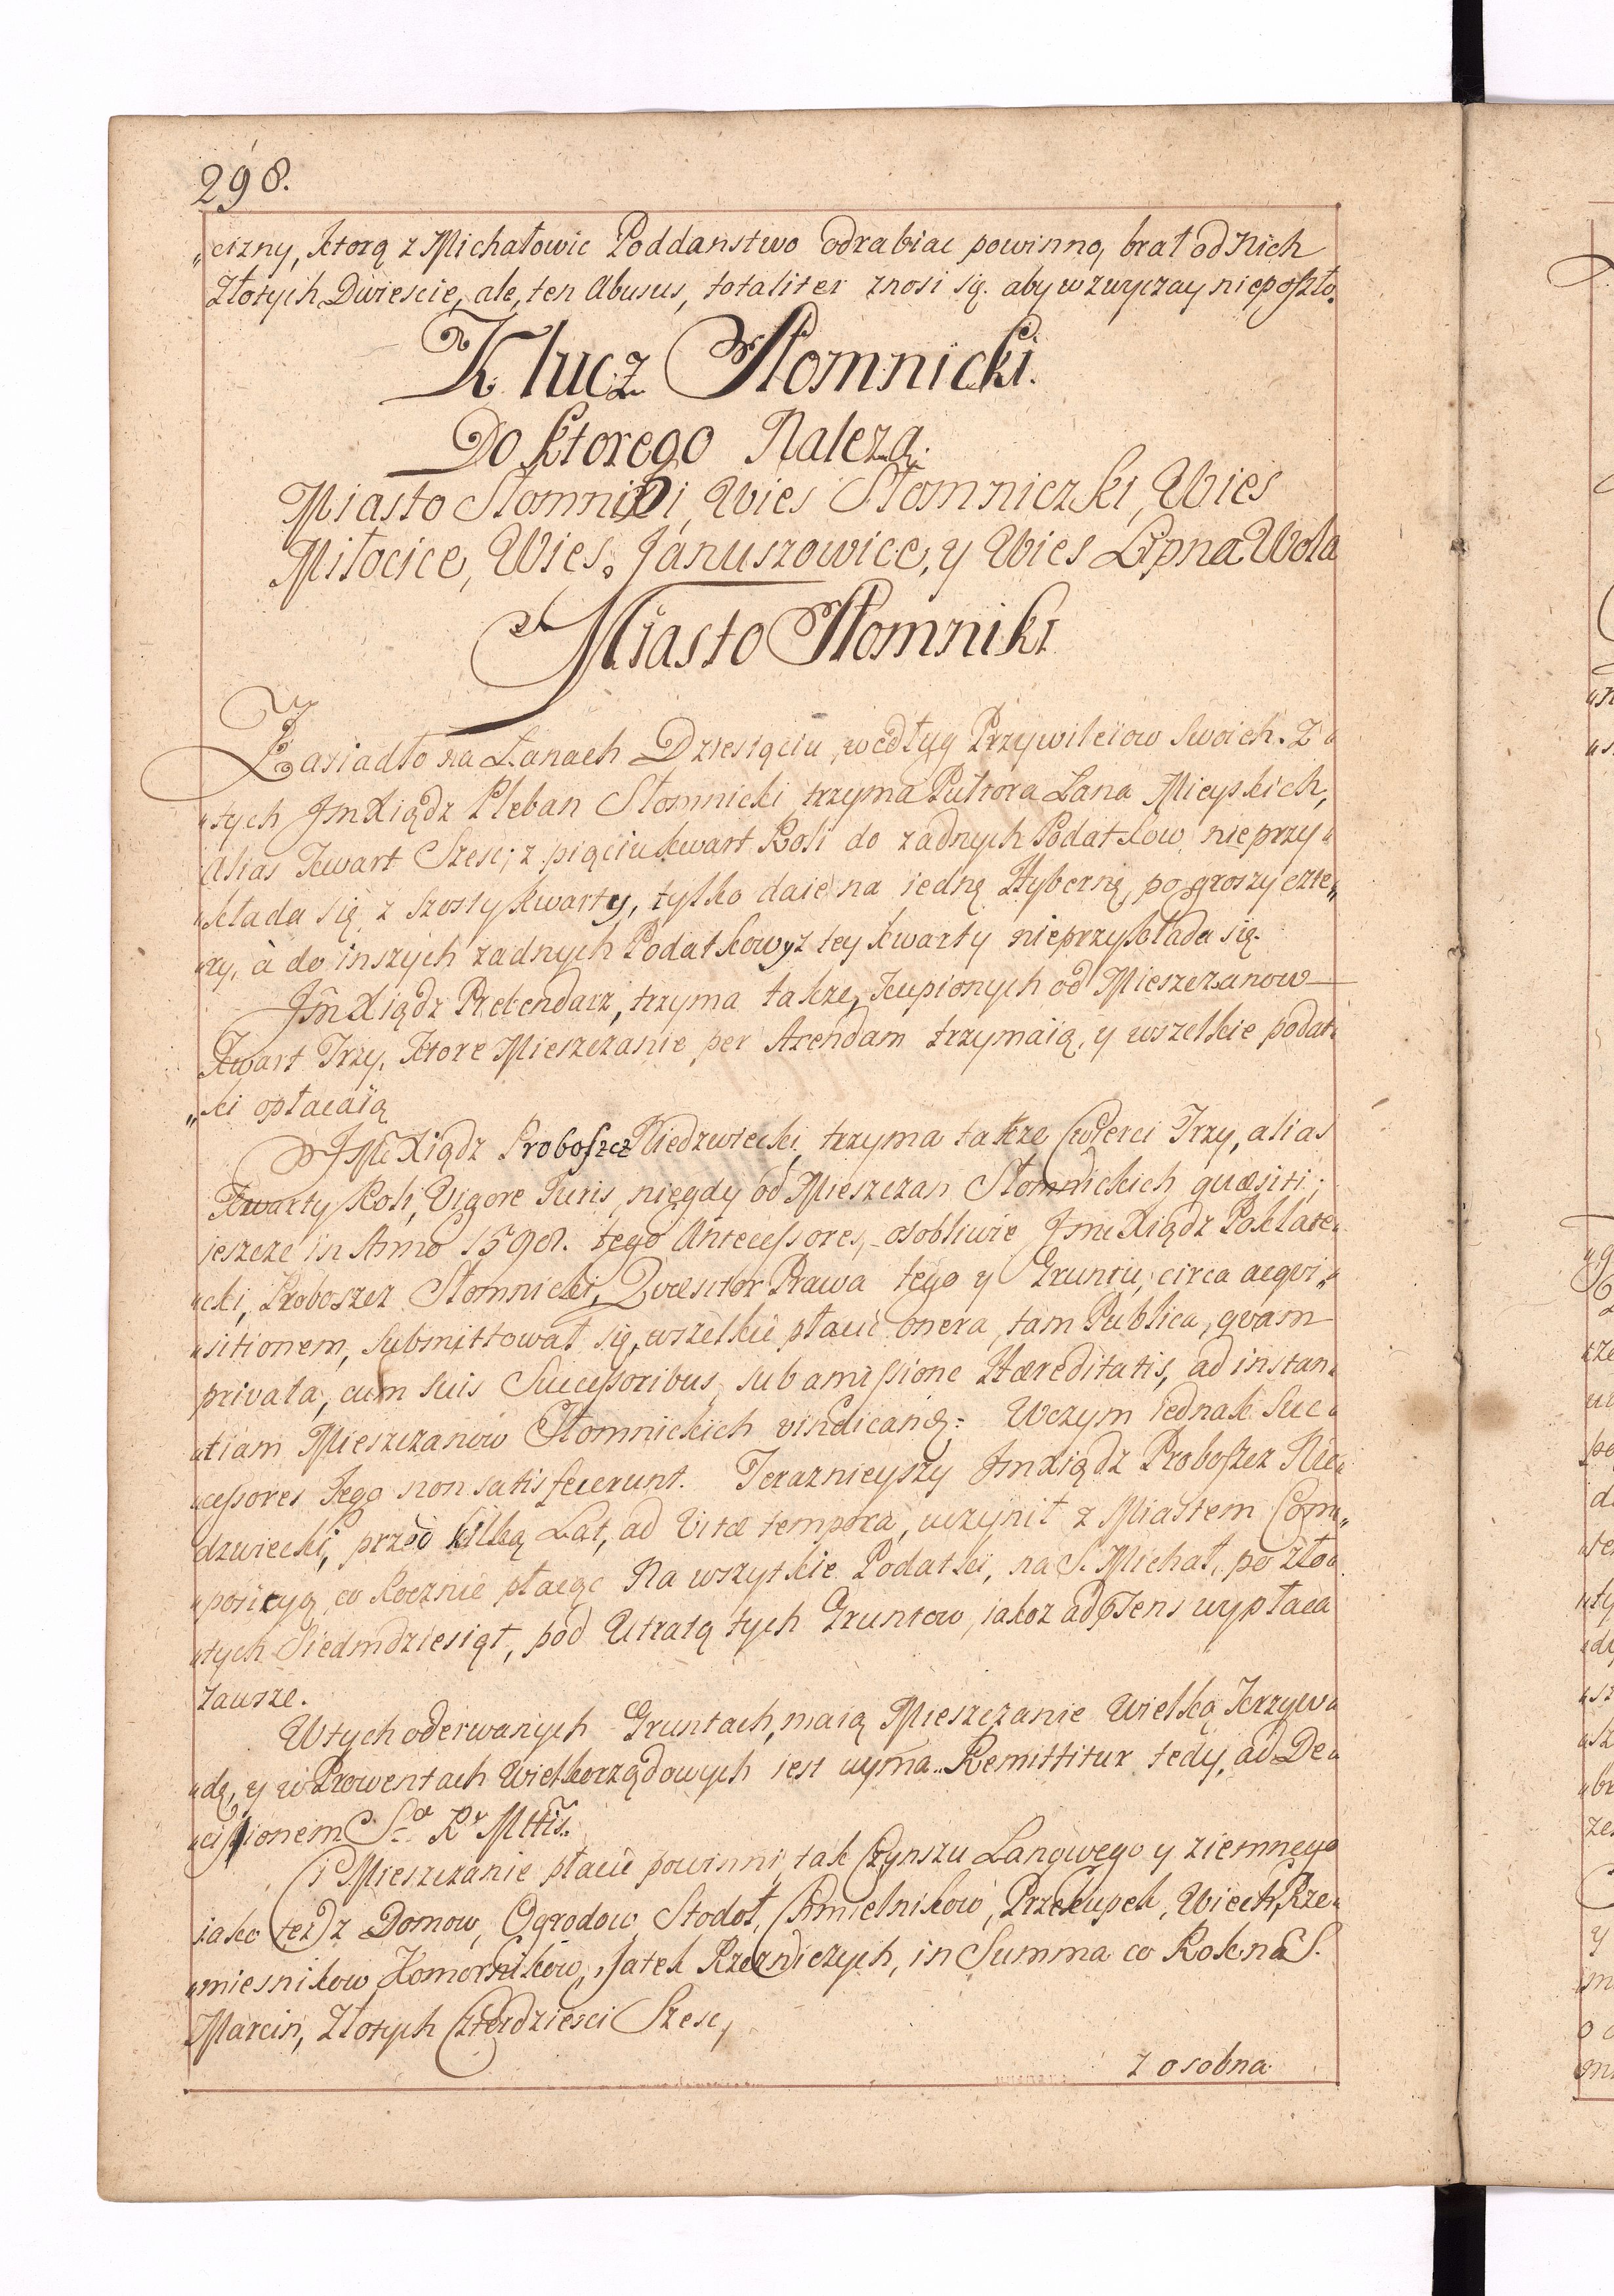 298.
„cizny, ktorą z Michałowic Poddanstwo odrabiac powinno, brał od Nich
Złotych Dwiescie, ale, ten Abusus, totaliter znosi się. aby w zwyczay nieposzło.
Klucz Słomnicki.
Do ktorego Nalezą.
Miasto Słomniki, Wies Słomniczki, Wies
Miłocice, Wies. Januszowice, y Wies Lipna Wola
Miasto Słomniki
Zasiadło na Łanach Dziesiąciu, według Przywileiow swoich. Z „
„tych Jm Xiądz Pleban Słomnicki trzyma Pułtora Łana Mieyskich,
Alias Kwart Szesc; z piąciu kwart Roli do zadnych Podatkow, nieprzy„
„kłada się, z szosty kwarty, tylko daie na iedną Hybernę, po groszy czte„
„ry, à do inszych zadnych Podatkow, z tey kwarty nieprzykłada się.
Jm̃ Xiądz Prebendarz, trzyma takze, kupionych od Mieszczanow
Kwart Trzy, ktore Mieszczanie per Arendam trzymaią, y wszelkie podat„
„ki opłacaią
Jmć Xiądz Proboszcz Niedzwiecki, trzyma takze Cwierci Trzy, alias
Kwarty Roli, Vigore Juris, niegdy od Mieszczan Słomnickich quæsiti;
jeszcze in Anno 1598. tego Antecessores, osobliwie Jmć Xiądz Poklate„
„cki, Proboszcz Słomnicki, Quæsitor Prawa tego y Gruntu, circa acqvi„
„sitionem, submittował się, wszelkie płacić onera, tam Publica, qvam
privata, cum suis Successoribus, sub amissione Hæreditatis, ad instan„
„tiam Mieszczanow Słomnickich vindicand: Wczym iednak Suc„
„cessores Jego non satisfecerunt. Teraznieyszy Jm Xiądz Proboszcz Nie„
dzwiecki, przed kilką Lat, ad Vitæ tempora, uczynił z Miastem Com„
„posicyą, co Rocznie płacąc Na wszytkie Podatki, na S. Michał, po Zło„
„tych Siedmdziesiąt, pod Utratą tych Gruntow, iakoz ad psens wypłaca
zawsze.
W tych oderwanych Gruntach, maią Mieszczanie Wielką Krzyw„
„dę, y w Prowentach Wielkorządowych iest uyma. Remittitur tedy, ad De„
„cisionem S: Rᵃ Mttis.
Ci Mieszczanie płacić powinni, tak Czynszu Łanowego y ziemnego
iako tez z Domow, Ogrodow, Stodoł, Chmielnikow, Przekupek, Wiech, Rze„
„miesnikow, Komornikow, Jatek Rzezniczych, in Summa co Rok na S.
Marcin, Złotych Czterdziesci Szesc,
z osobna